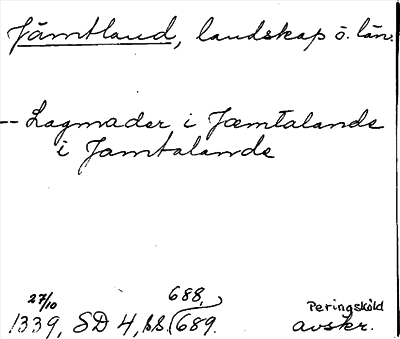 Jämtland, landskap ö. län.
-- Lagmader i Jæmtalande
i Jamtalande
27/10 688,
1339, SD 4, ss. 689.
Peringsköld
avskr.